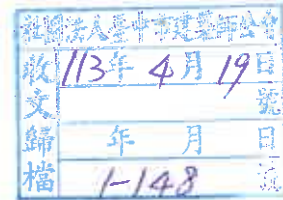 社團法人臺中市建築師公會
收文 113年 4月 19日
號
歸檔 年 月 日
1-148 號